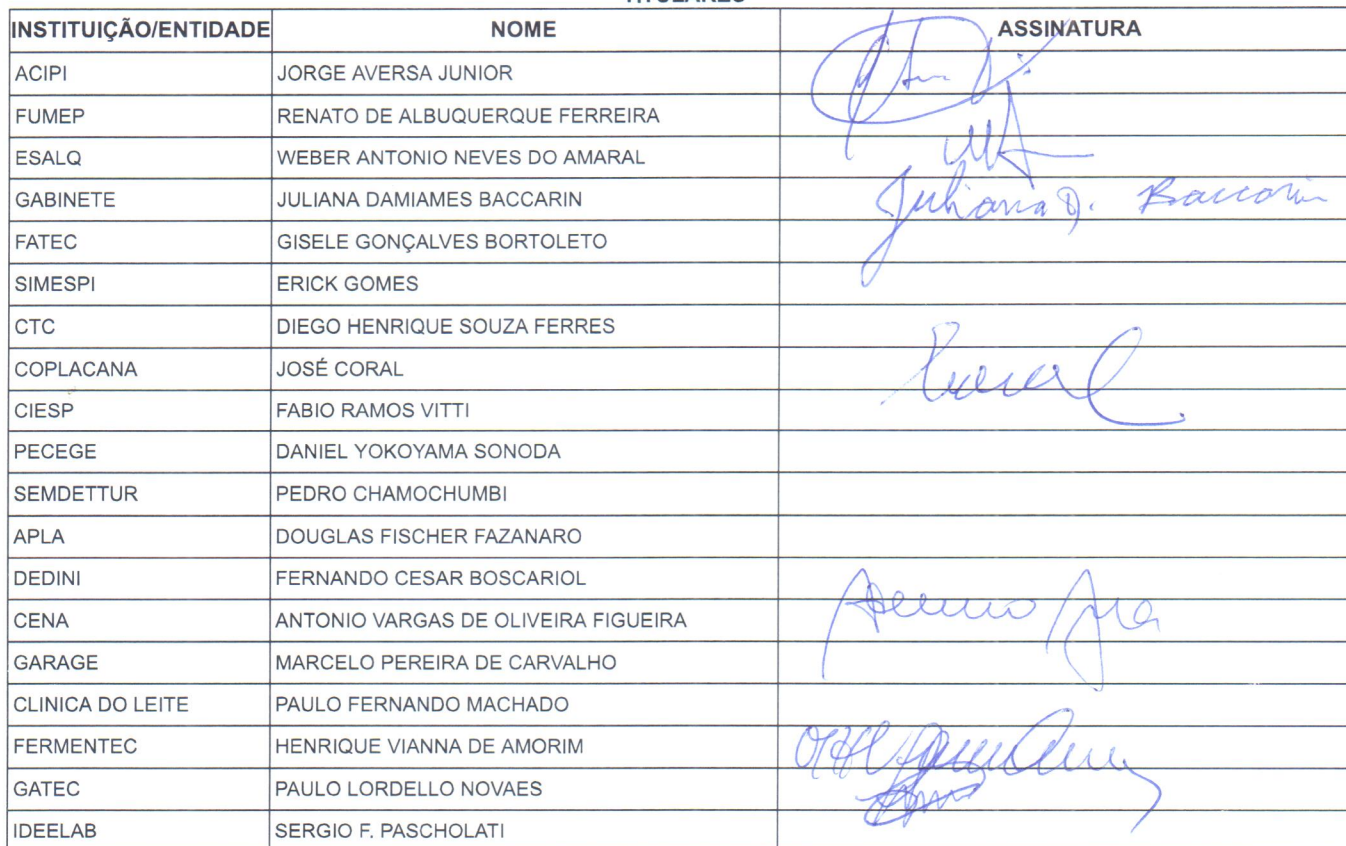 INSTITUIÇÃO/ENTIDADE NOME ASSINATURA
ACIPI JORGE AVERSA JUNIOR
FUMEP RENATO DE ALBUQUERQUE FERREIRA
ESALQ WEBER ANTONIO NEVES DO AMARAL
GABINETE JULIANA DAMIAMES BACCARIN Juliana D. Baccarin
FATEC GISELE GONÇALVES BORTOLETO
SIMESPI ERICK GOMES
CTC DIEGO HENRIQUE SOUZA FERRES
COPLACANA JOSÉ CORAL
CIESP FABIO RAMOS VITTI
PECEGE DANIEL YOKOYAMA SONODA
SEMDETTUR PEDRO CHAMOCHUMBI
APLA DOUGLAS FISCHER FAZANARO
DEDINI FERNANDO CESAR BOSCARIOL
CENA ANTONIO VARGAS DE OLIVEIRA FIGUEIRA
GARAGE MARCELO PEREIRA DE CARVALHO
CLINICA DO LEITE PAULO FERNANDO MACHADO
FERMENTEC HENRIQUE VIANNA DE AMORIM
GATEC PAULO LORDELLO NOVAES
IDEELAB SERGIO F. PASCHOLATI